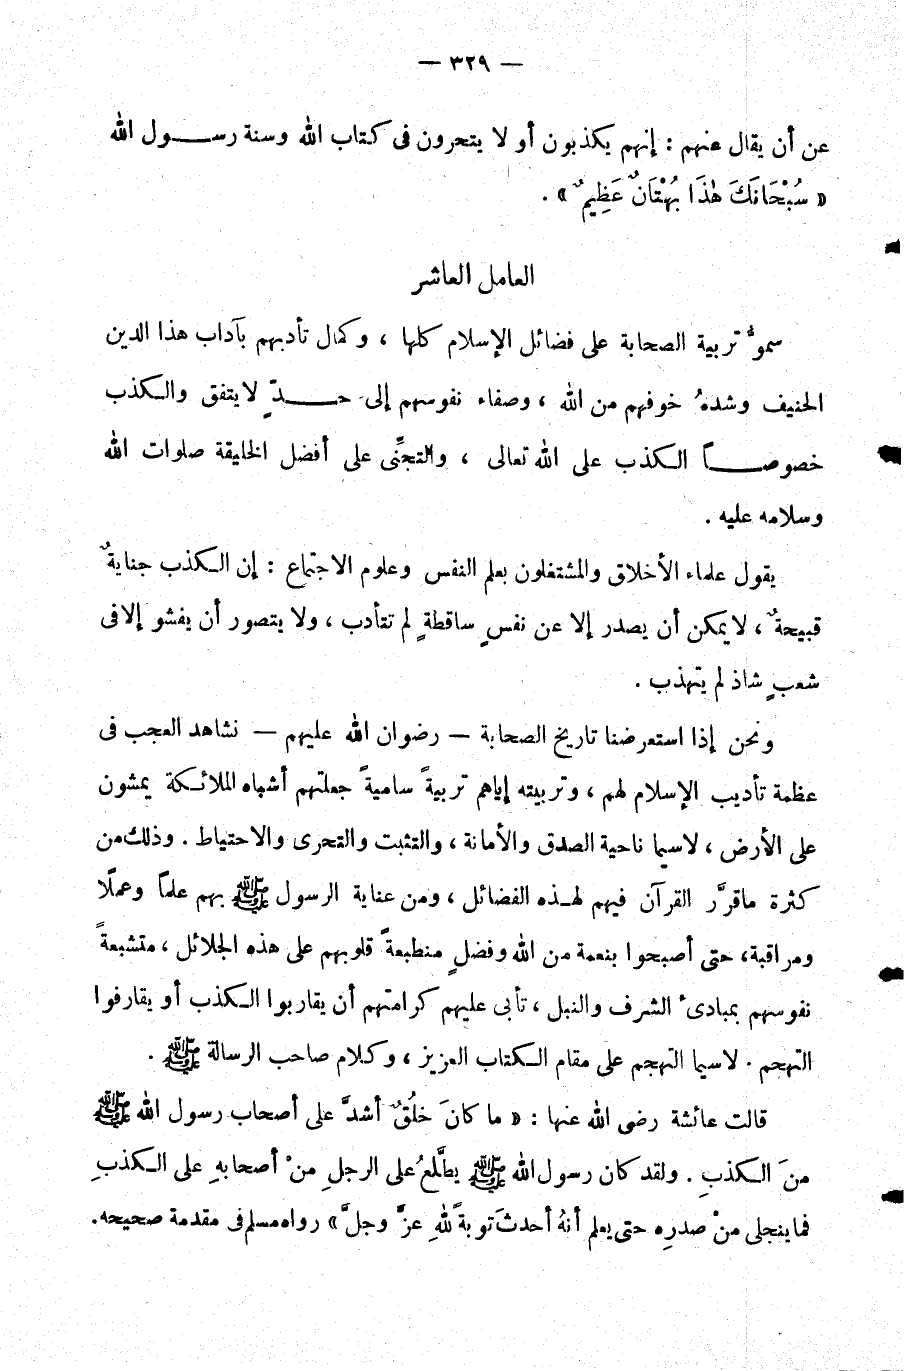 — ٣٢٩ —
عن أن يقال عنهم : إنهم يكذبون أو لا يتحرون فى كتاب الله وسنة رسول الله
« سُبْحَانَكَ هٰذَا بُهْتَانٌ عَظِيمٌ » .
العامل العاشر
سموُّ تربية الصحابة على فضائل الإسلام كلها ، وكمال تأدبهم بآداب هذا الدين
الحنيف وشدهُ خوفهم من الله ، وصفاء نفوسهم إلى حدّ لا يتفق والكذب
خصوصاً الكذب على الله تعالى ، والتجنِّى على أفضل الخليقة صلوات الله
وسلامه عليه .
يقول علماء الأخلاق والمشتغلون بعلم النفس وعلوم الاجتماع : إن الكذب جنايةٌ
قبيحةٌ ، لا يمكن أن يصدر إلا عن نفسٍ ساقطةٍ لم تتأدب ، ولا يتصور أن يفشو إلا فى
شعبٍ شاذ لم يتهذب .
ونحن إذا استعرضنا تاريخ الصحابة — رضوان الله عليهم — نشاهد العجب فى
عظمة تأديب الإسلام لهم ، وتربيته إياهم تربيةً ساميةً جعلتهم أشباه الملائكة يمشون
على الأرض ، لاسيما ناحية الصدق والأمانة ، والتثبت والتحرى والاحتياط . وذلك من
كثرة ماقرَّر القرآن فيهم لهذه الفضائل ، ومن عناية الرسول ﷺ بهم علماً وعملًا
ومراقبة، حتى أصبحوا بنعمة من الله وفضلٍ منطبعةً قلوبهم على هذه الجلائل ، متشبعةً
نفوسهم بمبادىء الشرف والنبل ، تأبى عليهم كرامتهم أن يقاربوا الكذب أو يقارفوا
التهجم . لاسيما التهجم على مقام الكتاب العزيز ، وكلام صاحب الرسالة ﷺ .
قالت عائشة رضى الله عنها : « ما كانَ خلُقٌ أشدَّ على أصحاب رسول الله ﷺ
منَ الكذبِ . ولقد كان رسول الله ﷺ يطَّلعُ على الرجلِ منْ أصحابهِ على الكذبِ
فما ينجلى منْ صدرِه حتى يعلم أنهُ أحدثَ توبةً للهِ عزَّ وجلَّ » رواه مسلم فى مقدمة صحيحه.